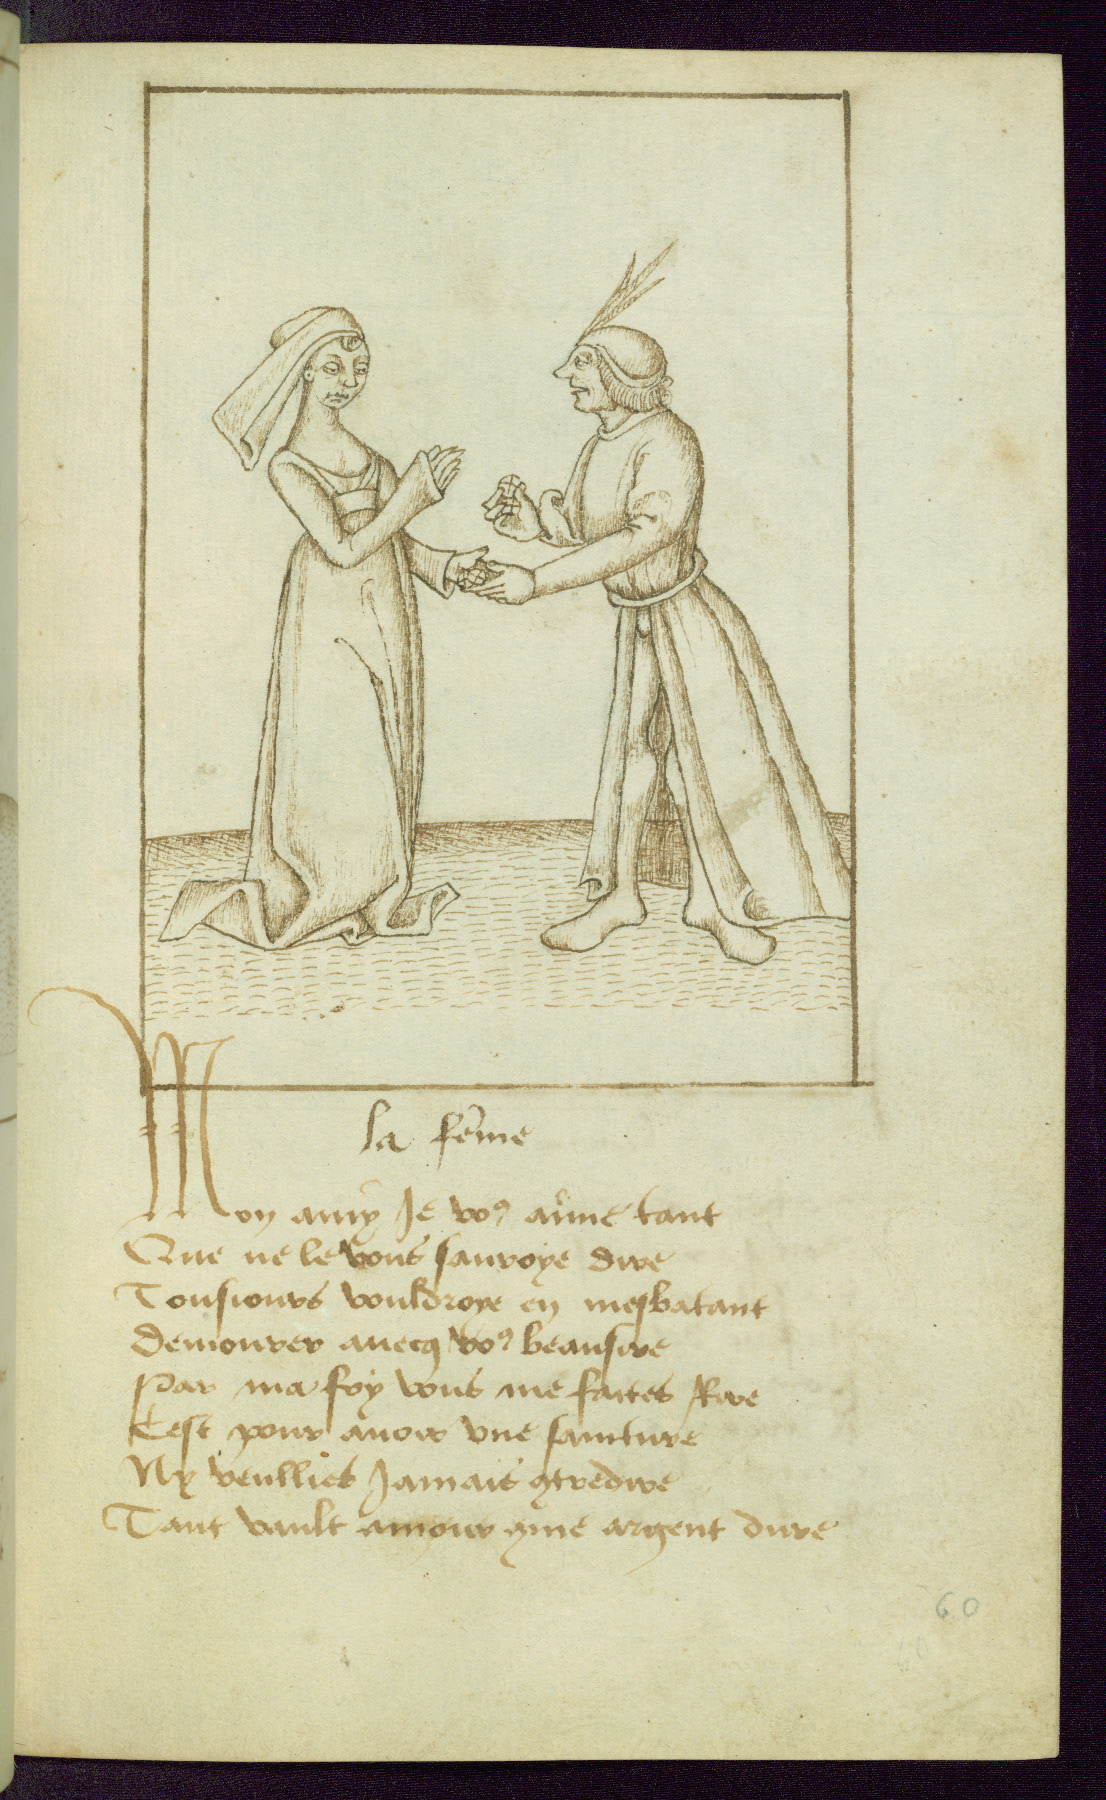 la fēme
Mon amy Je vo⁹ aīme tant
Que ne le vous sauroye dire
Tousiours vouldroye en mesbatant
Demourer auecq vo⁹ beausire
Par ma foy vous me faites Rire
Cest pour auoir vne saincture
Ny veullies Jamais ꝯtredire
Tant vault amour ꝯme argent dure
60